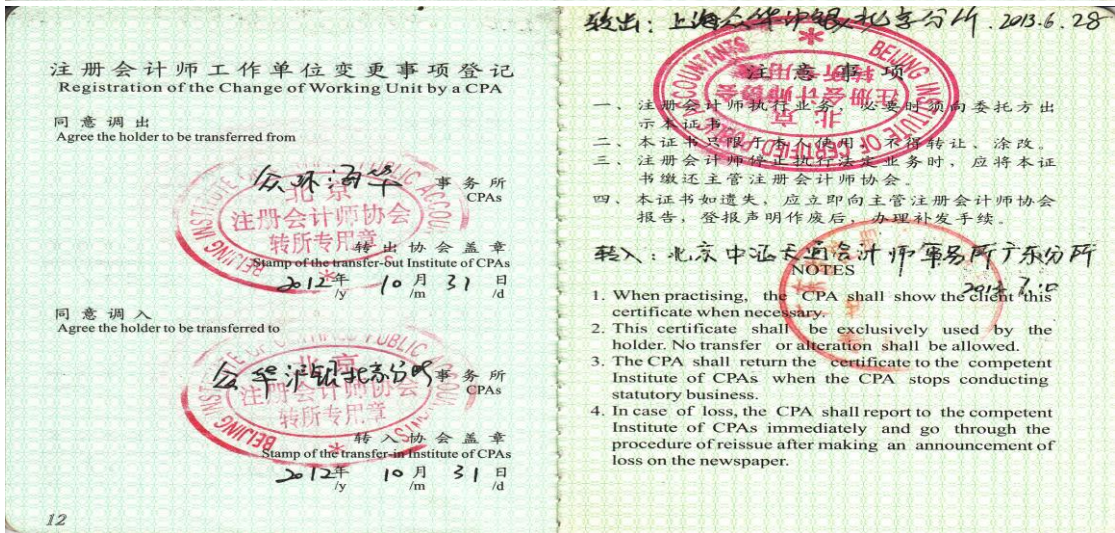 注册会计师工作单位变更事项登记
Registration of the Change of Working Unit by a CPA
同意调出
Agree the holder to be transferred from
众环海华 事务所
CPAs
BEIJING INSTITUTE OF CERTIFIED PUBLIC ACCOUNTANTS
北京
注册会计师协会
转所专用章
转出协会盖章
Stamp of the transfer-out Institute of CPAs
2012年 10月 31日
/y /m /d
同意调入
Agree the holder to be transferred to
众华沪银北京分所 事务所
CPAs
BEIJING INSTITUTE OF CERTIFIED PUBLIC
北京
注册会计师协会
转所专用章
转入协会盖章
Stamp of the transfer-in Institute of CPAs
2012年 10月 31日
/y /m /d
12
转出：上海众华沪银北京分所.2013.6.28
BEIJING INSTITUTE OF CERTIFIED PUBLIC ACCOUNTANTS
北京
注册会计师协会
转所专用章
注意事项
一、注册会计师执行业务，必要时须向委托方出
示本证书。
二、本证书只限于本人使用，不得转让、涂改。
三、注册会计师停止执行法定业务时，应将本证
书缴还主管注册会计师协会。
四、本证书如遗失，应立即向主管注册会计师协会
报告，登报声明作废后，办理补发手续。
转入：北京中证天通会计师事务所广东分所
2013.7.10
NOTES
1. When practising, the CPA shall show the client this
certificate when necessary.
2. This certificate shall be exclusively used by the
holder. No transfer or alteration shall be allowed.
3. The CPA shall return the certificate to the competent
Institute of CPAs when the CPA stops conducting
statutory business.
4. In case of loss, the CPA shall report to the competent
Institute of CPAs immediately and go through the
procedure of reissue after making an announcement of
loss on the newspaper.